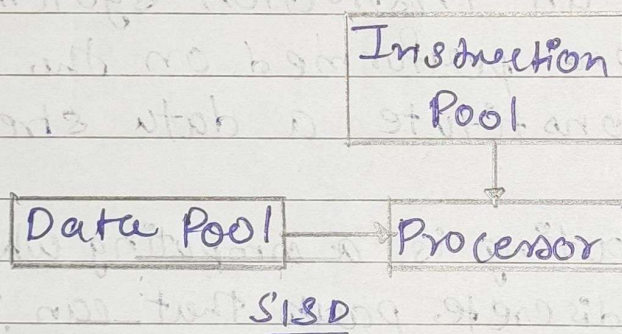 Instruction
Pool
Data Pool
Processor
SISD